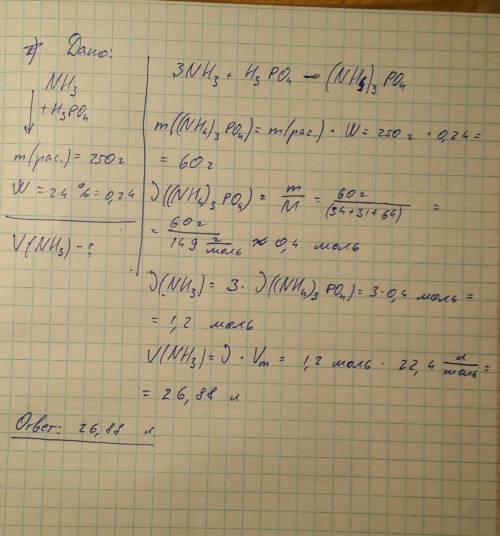 Дано:
NH₃
+H₃PO₄
m(рас.) = 250 г
W = 24 % = 0,24
V(NH₃) - ?
3NH₃ + H₃PO₄ → (NH₄)₃PO₄
m((NH₄)₃PO₄) = m(рас.) · W = 250 г · 0,24 =
= 60 г
J((NH₄)₃PO₄) = m/M = 60 г/(54+31+64) =
= 60 г/149 г/моль ≈ 0,4 моль
J(NH₃) = 3 · J((NH₄)₃PO₄) = 3·0,4 моль =
= 1,2 моль
V(NH₃) = J · Vm = 1,2 моль · 22,4 л/моль =
= 26,88 л
Ответ: 26,88 л